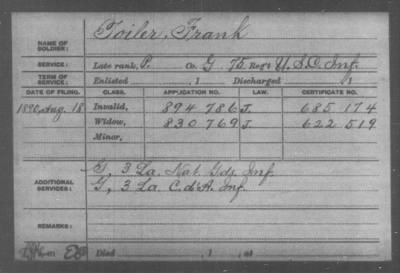 NAME OF SOLDIER: Toiler, Frank
SERVICE: Late rank, P. Co. G 75 Reg't U.S.C. Inf.
TERM OF SERVICE: Enlisted , 1 Discharged , 1
DATE OF FILING. CLASS. APPLICATION NO. LAW. CERTIFICATE NO.
1890, Aug. 18 Invalid, 894 786 J. 685 174
Widow, 830 769 J. 622 519
Minor,
ADDITIONAL SERVICES: G, 3 La. Nat. Gds. Inf.
G, 3 La. C. d'A. Inf.
REMARKS:
Died , 1 , at